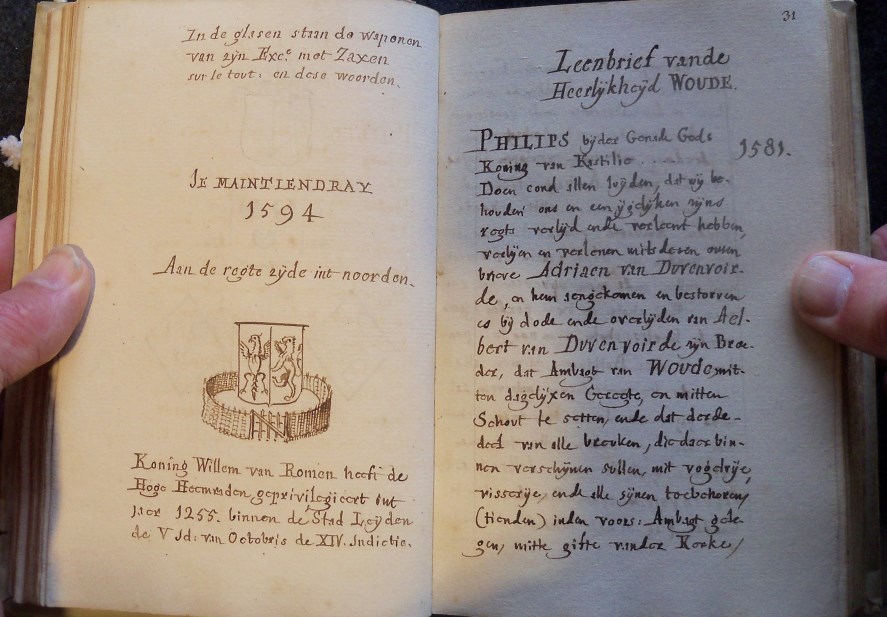 In de glasen staan de wapenen
van zijn Exc.e met Zaxen
sur le tout. en dese woorden.
JE MAINTIENDRAY
1594
Aan de regte zijde int noorden.
Koning Willem van Romen heeft de
Hoge Heemraden geprivilegieert int
jaer 1255. binnen de Stad Leijden
de V Jd: van Octobris de XIV. Indictie.
31
Leenbrief vande
Heerlijkheijd WOUDE.
PHILIPS bij der Gensde Gods
1581.
Koning van Kastilie.
Doen cond allen luijden, dat wij be-
houden ons en een ijgelijken zijns
regts verlijd ende verleent hebben,
verlijen en verlenen mits desen onsen
brieve Adriaen van Duvenvoir-
de, en hem aengekomen en bestorven
es bij dode ende overlijden van Ael-
bert van Duvenvoirde zijn Broe-
der, dat Ambagt van Woude, mit-
ten dagelijxen Geregte, en mitten
Schout te setten, ende dat derde-
deel van alle breuken, die daer bin-
nen verschijnen sullen, mit vogelrije,
visserije, ende alle sijnen toebehoren,
(tienden) inden voors: Ambagt gele-
gen, mitte gifte vander Kerke,